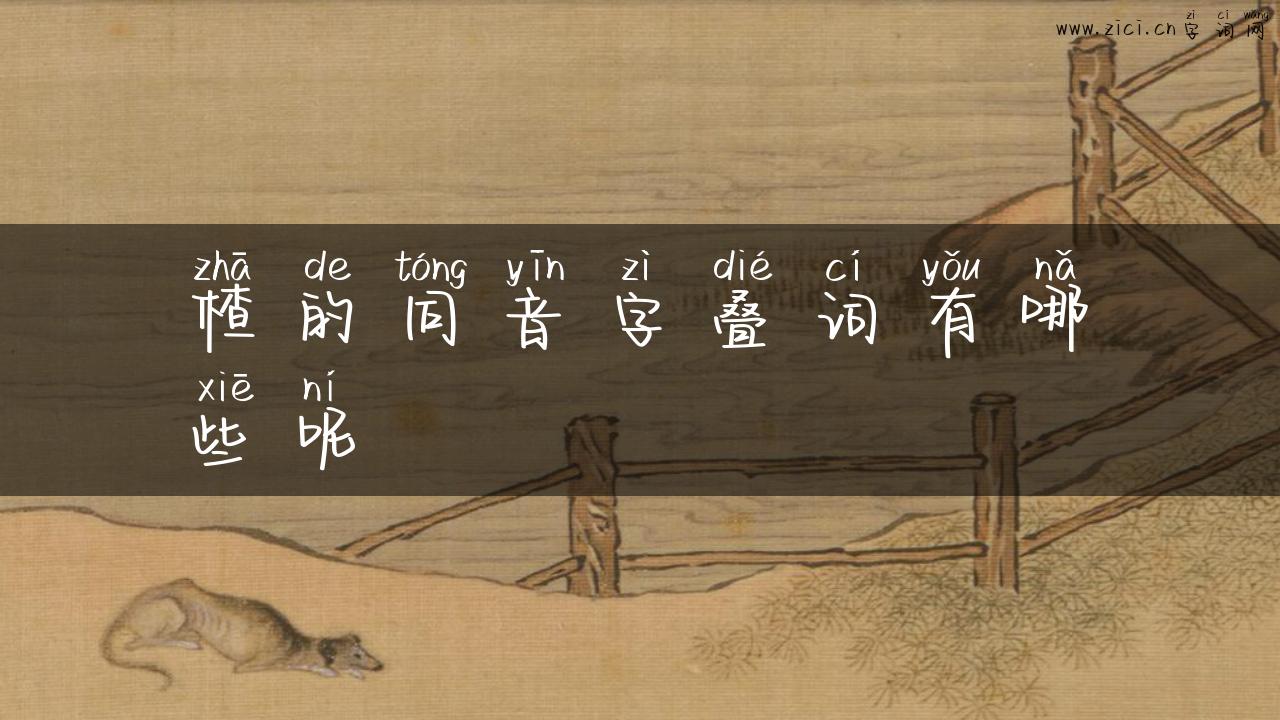 zì cí wǎng
www.zici.cn 字词网
zhā de tóng yīn zì dié cí yǒu nǎ
楂的同音字叠词有哪
xiē ní
些呢